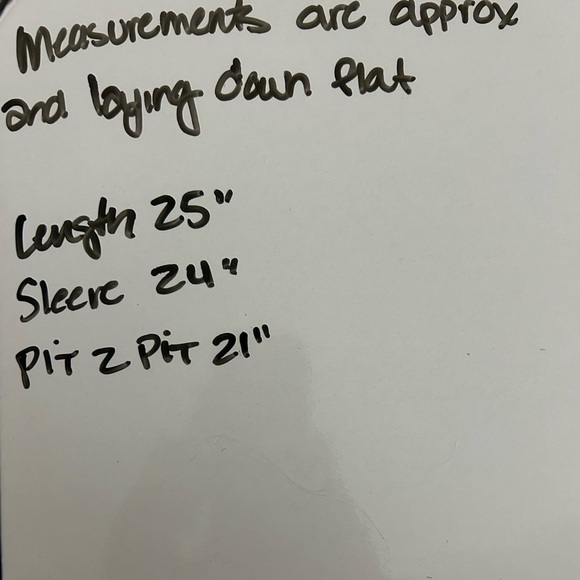 Measurements are approx
and laying down flat
Length 25"
Sleeve 24"
Pit 2 Pit 21"